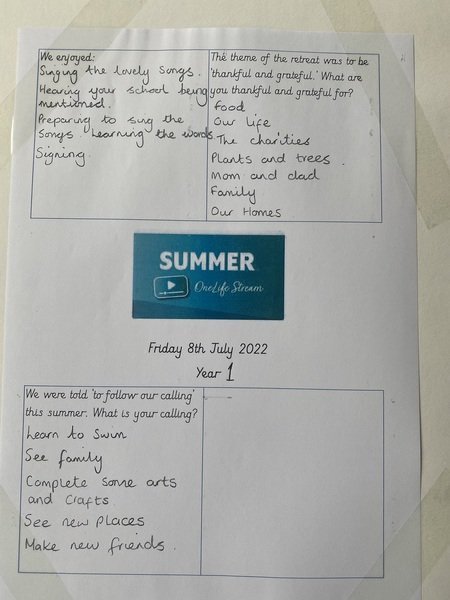 We enjoyed:
Singing the lovely songs.
Hearing your school being
mentioned.
Preparing to sing the
songs. Learning the words
Signing.
The theme of the retreat was to be
'thankful and grateful.' What are
you thankful and grateful for?
Food
Our Life
The charities
Plants and trees.
Mom and dad
Family
Our Homes
SUMMER
OneLife Stream
Friday 8th July 2022
Year 1
We were told 'to follow our calling'
this summer. What is your calling?
Learn to swim
See family
Complete some arts
and crafts
See new places
Make new friends.